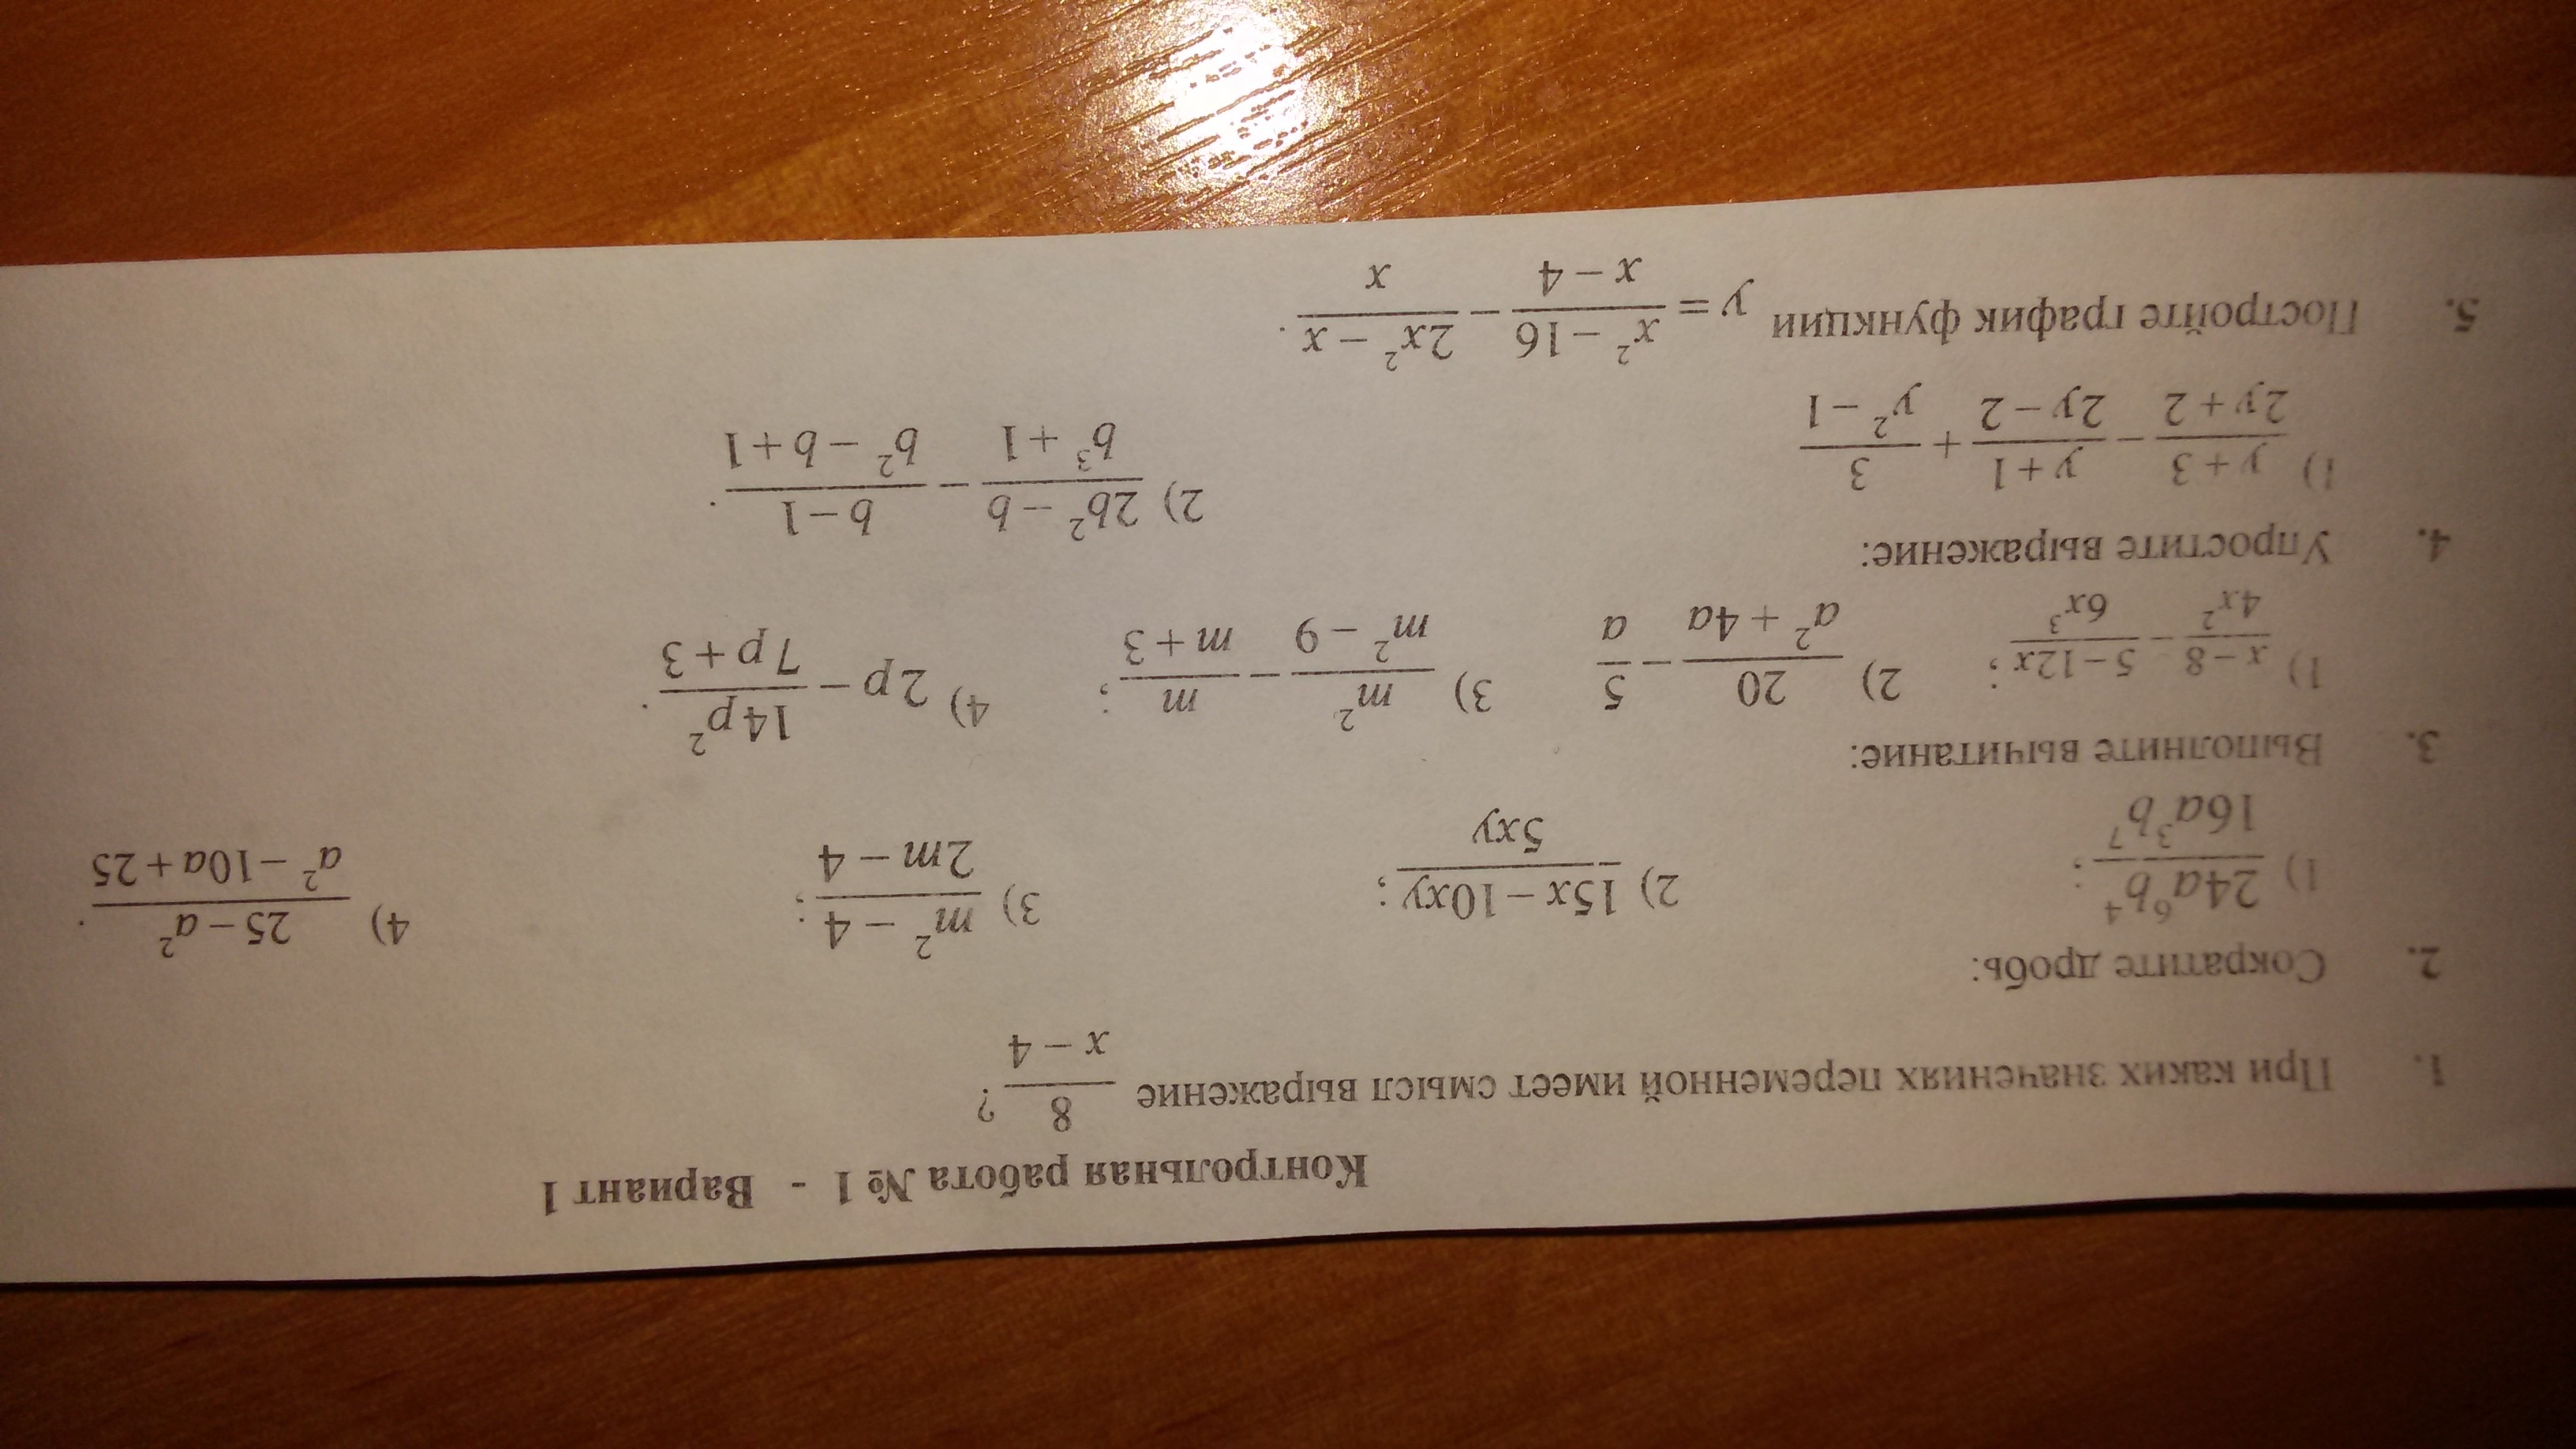 Контрольная работа № 1 - Вариант 1
1. При каких значениях переменной имеет смысл выражение 8/(x − 4)?
2. Сократите дробь:
1) 24a⁶b⁴/16a³b⁷; 2) (15x − 10xy)/5xy; 3) (m² − 4)/(2m − 4); 4) (25 − a²)/(a² − 10a + 25).
3. Выполните вычитание:
1) (x − 8)/4x² − (5 − 12x)/6x³; 2) 20/(a² + 4a) − 5/a 3) m²/(m² − 9) − m/(m + 3); 4) 2p − 14p²/(7p + 3).
4. Упростите выражение:
1) (y + 3)/(2y + 2) − (y + 1)/(2y − 2) + 3/(y² − 1) 2) (2b² − b)/(b³ + 1) − (b − 1)/(b² − b + 1).
5. Постройте график функции y = (x² − 16)/(x − 4) − (2x² − x)/x.